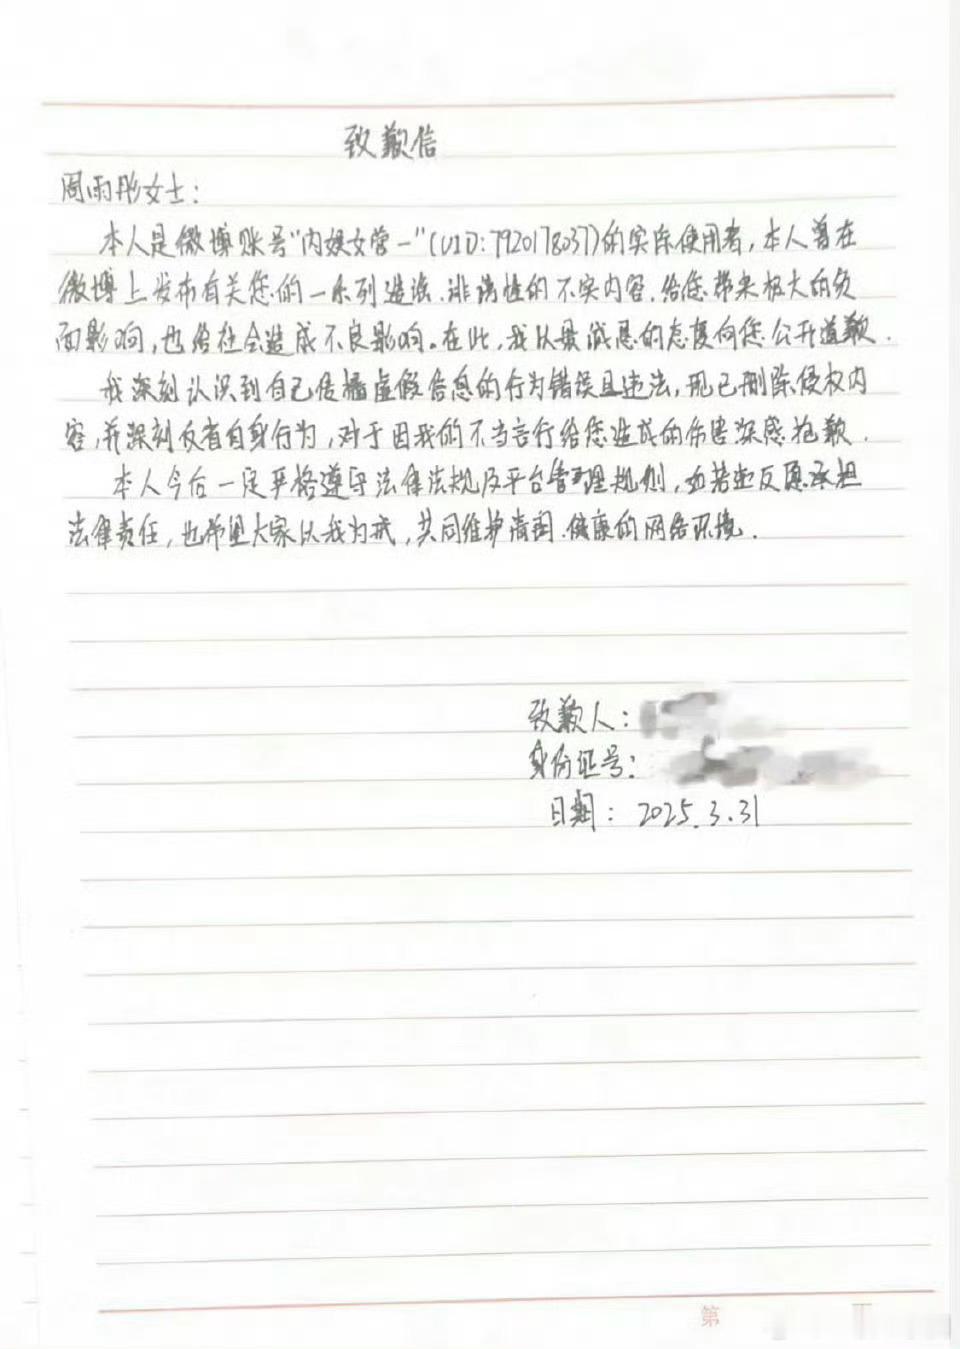 致歉信
周雨彤女士：
本人是微博账号"内娱女营一"(UID:7920178037)的实际使用者，本人曾在
微博上发布有关您的一系列造谣、诽谤性的不实内容，给您带来极大的负
面影响，也给社会造成不良影响。在此，我以最诚恳的态度向您公开道歉．
我深刻认识到自己传播虚假信息的行为错误且违法，现已删除侵权内
容，并深刻反省自身行为，对于因我的不当言行给您造成的伤害深感抱歉．
本人今后一定严格遵守法律法规及平台管理规则，如若违反愿承担
法律责任，也希望大家以我为戒，共同维护清朗、健康的网络环境．
致歉人：
身份证号：
日期：2025.3.31
第